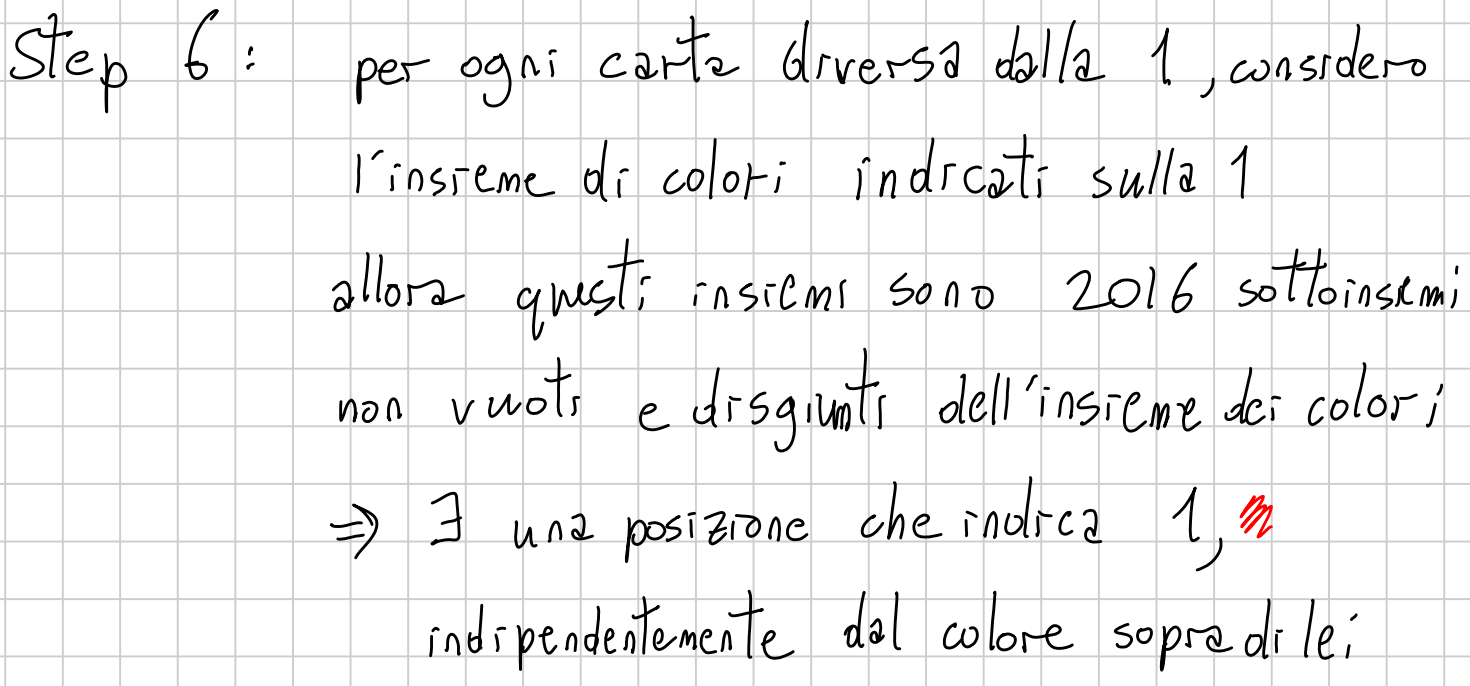 Step 6: per ogni carta diversa dalla 1, considero
l'insieme di colori indicati sulla 1
allora questi insiemi sono 2016 sottoinsiemi
non vuoti e disgiunti dell'insieme dei colori
⇒ ∃ una posizione che indica 1,
indipendentemente dal colore sopra di lei